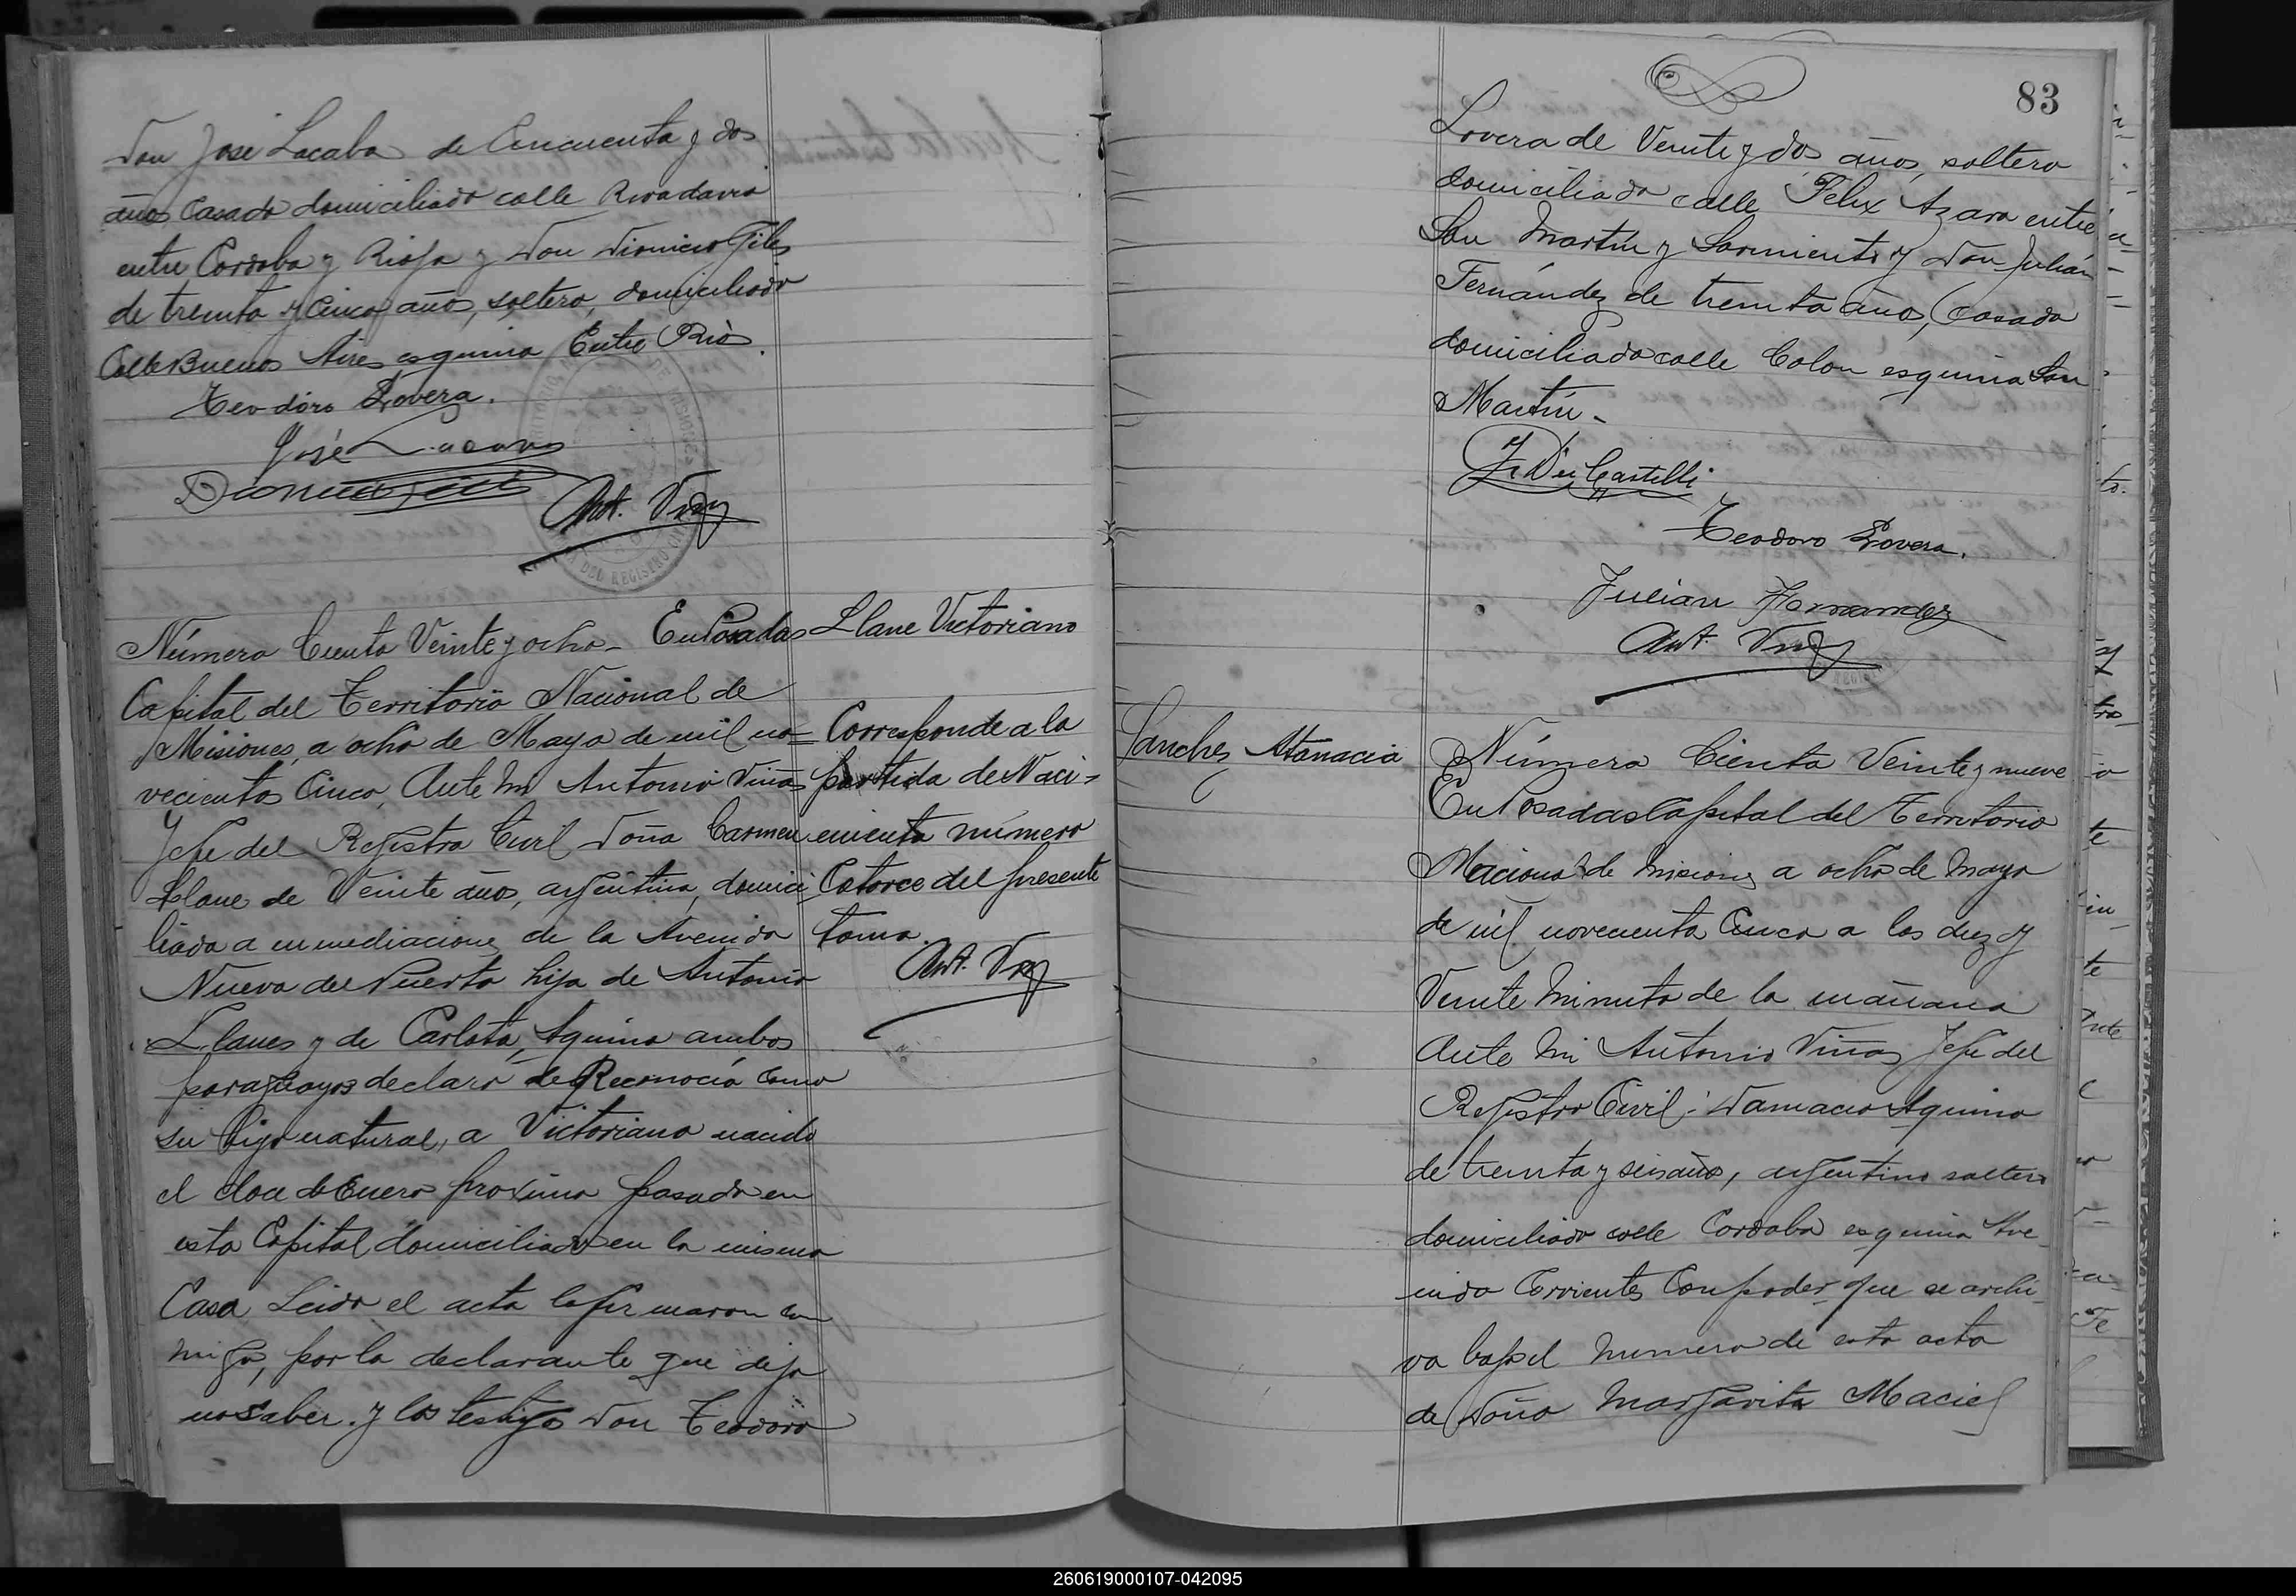 Don José Lacaba de Cincuenta y dos
años Casado domiciliado calle Rivadavia
entre Cordoba y Rioja y Don Dionicio Giles
de treinta y Cinco años, soltero, domiciliado
Calle Buenos Aires esquina Entre Rios.
Teodoro Lovera.
José Lacava
Ant. Viñas
Número Ciento Veinte y ocho - En Posadas
Capital del Territorio Nacional de
Misiones, a ocho de Mayo de mil no=
vecientos Cinco, Ante Mi Antonio Viñas
Jefe del Registro Civil Doña Carmen
Llane de Veinte años, argentina, domici
liada a inmediaciones de la Avenida
Nueva del Puerto hija de Antonio
Llanes y de Carlota Aquino ambos
paraguayos declaró de Reconocia como
su hijo natural, a Victoriano nacido
el doce de Enero proximo pasado en
esta Capital domiciliado en la misma
Casa Leida el acta la firmaron con
migo, por la declarante que dijo
no saber. y los testigos Don Teodoro
Llane Victoriano
Corresponde a la
partida de Naci=
emiento número
Catorce del presente
tomo.
Ant. Viñas
83
Lovera de Veinte y dos años, soltero
domiciliado calle Felix Azara entre
San Martín y Sarmiento y Don Julián
Fernández de treinta años, Casado
domiciliado calle Colon esquina San
Martín -
Castelli
Teodoro Lovera.
Julian Fernandez
Ant. Viñas
Sanches Atanacia
Número Ciento Veinte y nueve
En Posadas Capital del Territorio
Nacional de Misiones a ocho de Mayo
de mil novecientos Cinco a las diez y
Veinte Minutos de la mañana
Ante Mi Antonio Viñas Jefe del
Registro Civil: Damacio Aquino
de treinta y seis años, argentino soltero
domiciliado calle Cordoba esquina Ave
nida Corrientes Con poder que se archi
va bajo el Numero de esta acta
de Doña Margarita Maciel
260619000107-042095